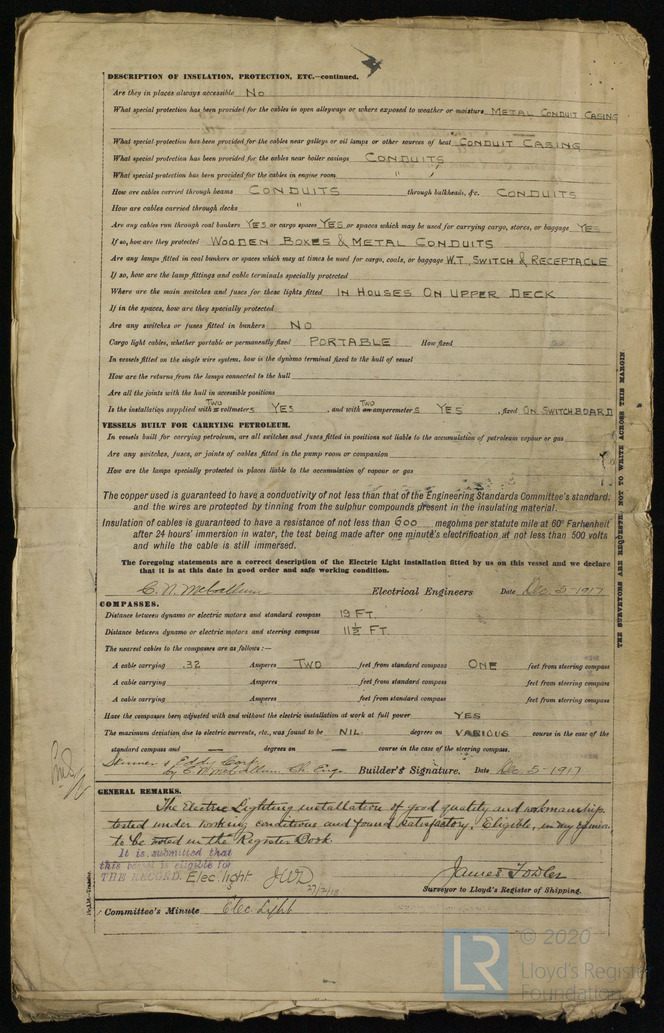 DESCRIPTION OF INSULATION, PROTECTION, ETC.—continued.
Are they in places always accessible No
What special protection has been provided for the cables in open alleyways or where exposed to weather or moisture METAL CONDUIT CASING
What special protection has been provided for the cables near galleys or oil lamps or other sources of heat CONDUIT CASING
What special protection has been provided for the cables near boiler casings CONDUITS
What special protection has been provided for the cables in engine room " "
How are cables carried through beams CONDUITS through bulkheads, &c. CONDUITS
How are cables carried through decks "
Are any cables run through coal bunkers YES or cargo spaces YES or spaces which may be used for carrying cargo, stores, or baggage YES
If so, how are they protected WOODEN BOXES & METAL CONDUITS
Are any lamps fitted in coal bunkers or spaces which may at times be used for cargo, coals, or baggage W.T. SWITCH & RECEPTACLE
If so, how are the lamp fittings and cable terminals specially protected
Where are the main switches and fuses for these lights fitted IN HOUSES ON UPPER DECK
If in the spaces, how are they specially protected
Are any switches or fuses fitted in bunkers NO
Cargo light cables, whether portable or permanently fixed PORTABLE How fixed
In vessels fitted on the single wire system, how is the dynamo terminal fixed to the hull of vessel
How are the returns from the lamps connected to the hull
Are all the joints with the hull in accessible positions
Is the installation supplied with TWO voltmeters YES , and with TWO amperemeters YES , fixed ON SWITCHBOARD
VESSELS BUILT FOR CARRYING PETROLEUM.
In vessels built for carrying petroleum, are all switches and fuses fitted in positions not liable to the accumulation of petroleum vapour or gas
Are any switches, fuses, or joints of cables fitted in the pump room or companion
How are the lamps specially protected in places liable to the accumulation of vapour or gas
The copper used is guaranteed to have a conductivity of not less than that of the Engineering Standards Committee's standard,
and the wires are protected by tinning from the sulphur compounds present in the insulating material.
Insulation of cables is guaranteed to have a resistance of not less than 600 megohms per statute mile at 60° Farhenheit
after 24 hours' immersion in water, the test being made after one minute's electrification at not less than 500 volts
and while the cable is still immersed.
The foregoing statements are a correct description of the Electric Light installation fitted by us on this vessel and we declare
that it is at this date in good order and safe working condition.
Electrical Engineers Date Dec. 5-1917
COMPASSES.
Distance between dynamo or electric motors and standard compass 19 FT.
Distance between dynamo or electric motors and steering compass 11½ FT.
The nearest cables to the compasses are as follows:—
A cable carrying .32 Amperes TWO feet from standard compass ONE feet from steering compass
A cable carrying Amperes feet from standard compass feet from steering compass
A cable carrying Amperes feet from standard compass feet from steering compass
Have the compasses been adjusted with and without the electric installation at work at full power YES
The maximum deviation due to electric currents, etc., was found to be NIL degrees on VARIOUS course in the case of the
standard compass and — degrees on — course in the case of the steering compass.
Skinner & Eddy Corp
by Ch. Eng. Builder's Signature. Date Dec. 5-1917
GENERAL REMARKS.
The Electric Lighting installation of good quality and workmanship.
tested under working conditions and found satisfactory. Eligible, in my opinion
to be noted in the Register Book.
It is submitted that
this vessel is eligible for
THE RECORD. Elec. light JWD 27/2/18
James Fowler
Surveyor to Lloyd's Register of Shipping.
Committee's Minute Elec. Light
THE SURVEYORS ARE REQUESTED NOT TO WRITE ACROSS THIS MARGIN
LR © 2020
Lloyd's Register
Foundation